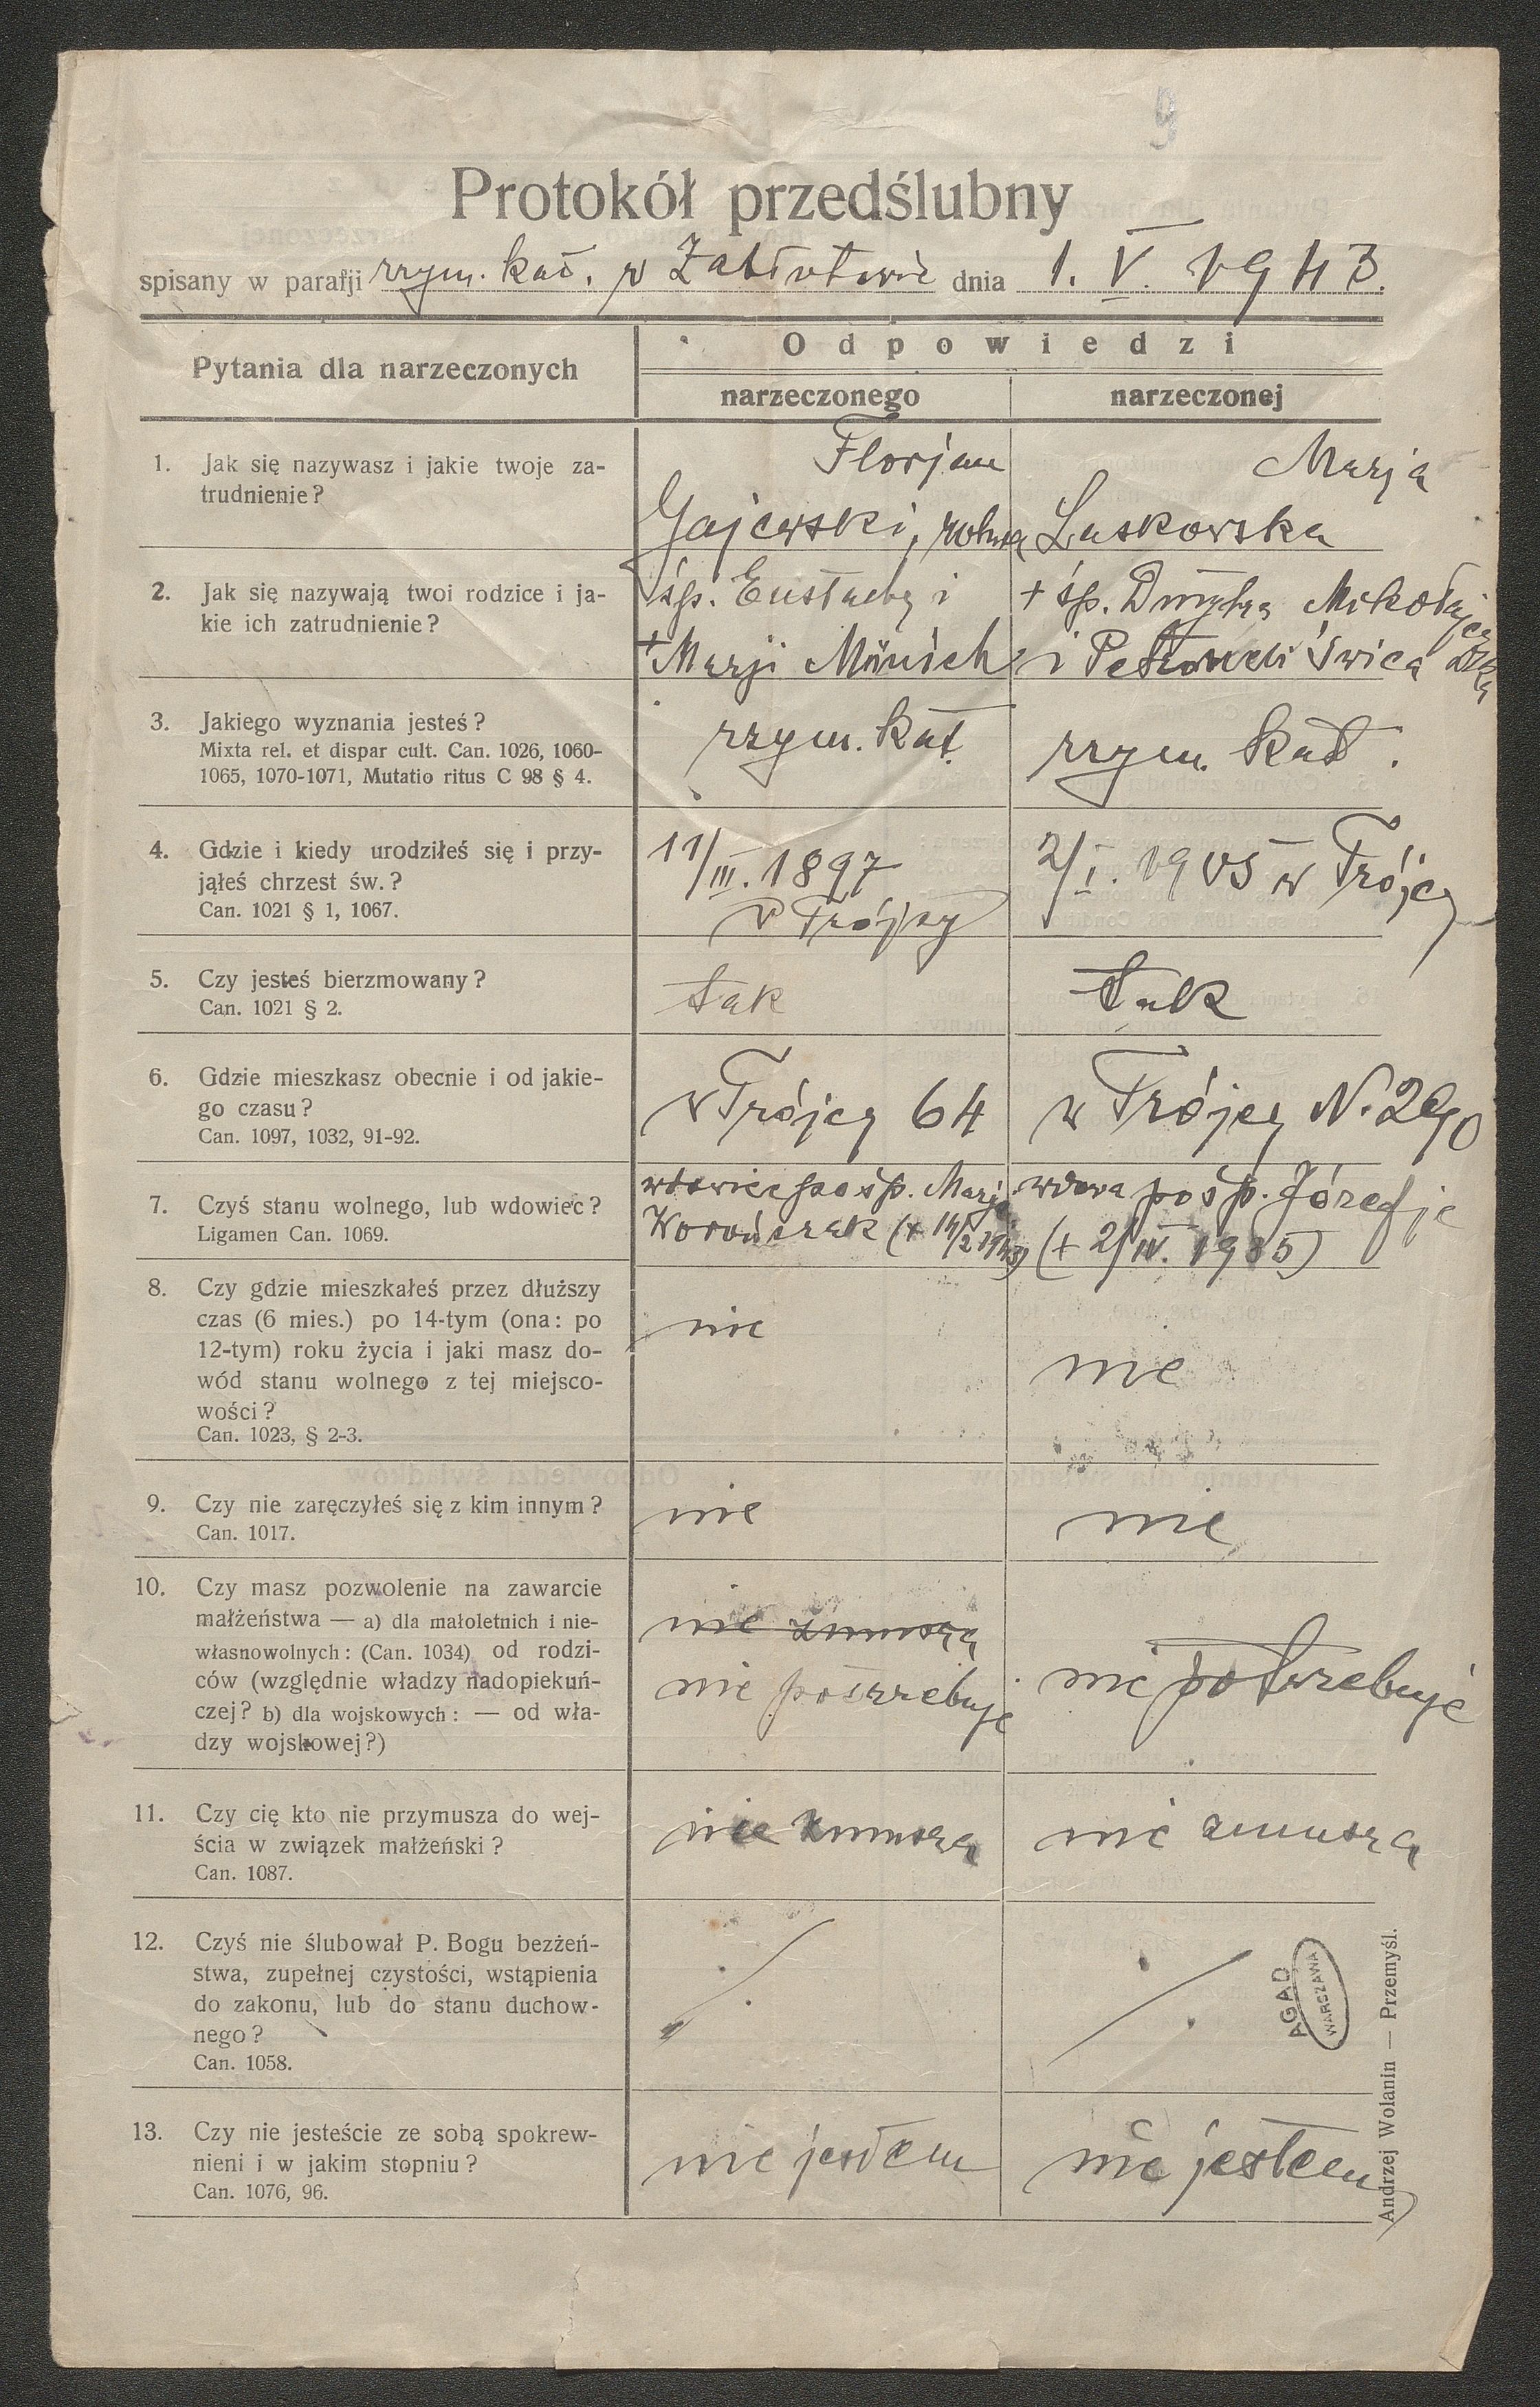 9
Protokół przedślubny
spisany w parafji rzym. kat. w Zabłotowie dnia 1. V. 1943.
Pytania dla narzeczonych
Odpowiedzi
narzeczonego
narzeczonej
1. Jak się nazywasz i jakie twoje za-
trudnienie?
Florjan
Gajewski,
Marja
Laskowska
2. Jak się nazywają twoi rodzice i ja-
kie ich zatrudnienie?
śp. Eustachy i
+ Marji Münich
+ śp. Dmytra
i
3. Jakiego wyznania jesteś?
Mixta rel. et dispar cult. Can. 1026, 1060-
1065, 1070-1071, Mutatio ritus C 98 § 4.
rzym. kat.
rzym. kat.
4. Gdzie i kiedy urodziłeś się i przy-
jąłeś chrzest św.?
Can. 1021 § 1, 1067.
11/III. 1897
w Trójcy
2/I. 1905 w Trójcy
5. Czy jesteś bierzmowany?
Can. 1021 § 2.
tak
tak
6. Gdzie mieszkasz obecnie i od jakie-
go czasu?
Can. 1097, 1032, 91-92.
w Trójcy 64
w Trójcy N. 290
7. Czyś stanu wolnego, lub wdowiec?
Ligamen Can. 1069.
wdowiec po śp. Marji
(+ 14/2 1943)
wdowa po śp. Józefie
(+ 2/IV. 1935)
8. Czy gdzie mieszkałeś przez dłuższy
czas (6 mies.) po 14-tym (ona: po
12-tym) roku życia i jaki masz do-
wód stanu wolnego z tej miejsco-
wości?
Can. 1023, § 2-3.
nie
nie
9. Czy nie zaręczyłeś się z kim innym?
Can. 1017.
nie
nie
10. Czy masz pozwolenie na zawarcie
małżeństwa — a) dla małoletnich i nie-
własnowolnych: (Can. 1034) od rodzi-
ców (względnie władzy nadopiekuń-
czej? b) dla wojskowych: — od wła-
dzy wojskowej?)
nie zmuszą
nie potrzebuje
nie potrzebuje
11. Czy cię kto nie przymusza do wej-
ścia w związek małżeński?
Can. 1087.
nie zmuszą
nie zmuszą
12. Czyś nie ślubował P. Bogu bezżeń-
stwa, zupełnej czystości, wstąpienia
do zakonu, lub do stanu duchow-
nego?
Can. 1058.
AGAD
WARSZAWA
13. Czy nie jesteście ze sobą spokrew-
nieni i w jakim stopniu?
Can. 1076, 96.
nie jestem
nie jestem
Andrzej Wolanin — Przemyśl.